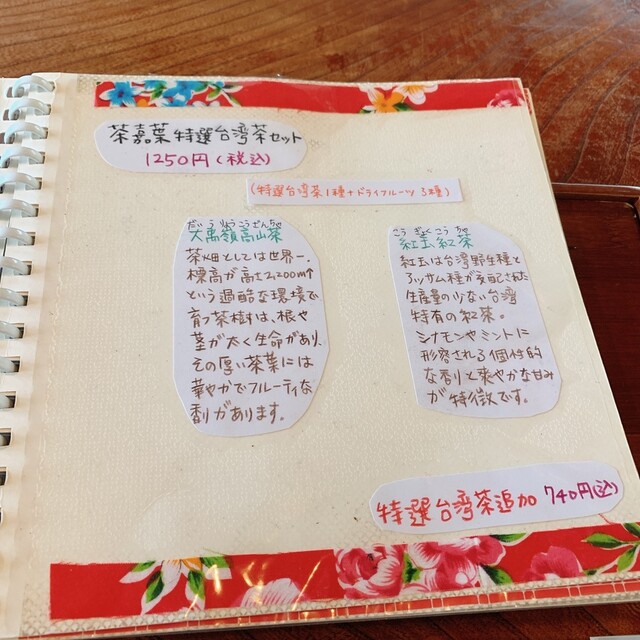 茶嘉葉 特選台湾茶セット
1250円(税込)
(特選台湾茶1種+ドライフルーツ3種)
だいうりょうこうざんちゃ
大禹嶺高山茶
茶畑としては世界一、
標高が高さ2,200m↑
という過酷な環境で
育つ茶樹は、根や
茎が太く生命があり、
その厚い茶葉には
華やかでフルーティな
香りがあります。
こうぎょくこうちゃ
紅玉紅茶
紅玉は台湾野生種と
アッサム種が交配された
生産量の少ない台湾
特有の紅茶。
シナモンやミントに
形容される個性的
な香りと爽やかな甘み
が特徴です。
特選台湾茶追加 740円(込)